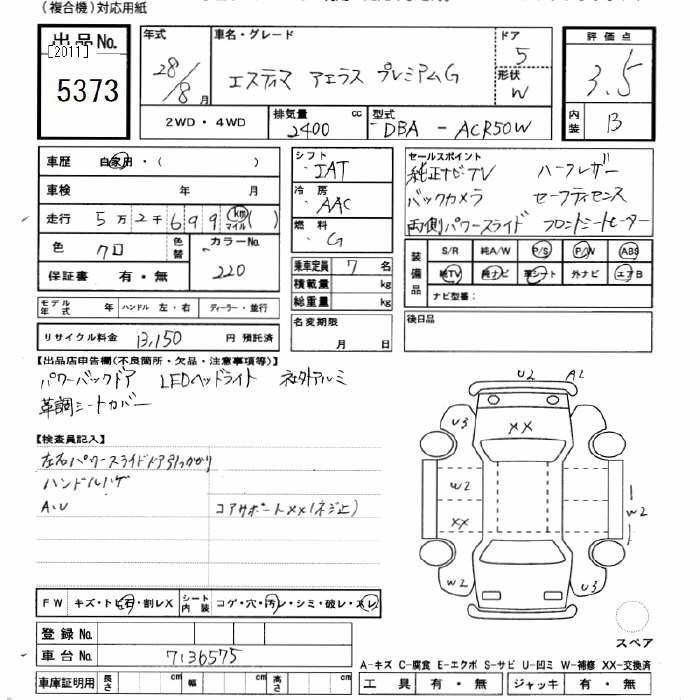 (複合機)対応用紙
出品No.
[2011]
5373
年式 28/8月
車名・グレード エスティマ アエラス プレミアムG
ドア 5
形状 W
評価点 3.5
内装 B
2WD・4WD
排気量 2400 cc
型式 DBA - ACR50W
車歴 自家用・( )
車検 年 月
走行 5万2千699 km マイル ( )
色 クロ 色替 カラーNo. 220
保証書 有・無
シフト IAT
冷房 AAC
燃料 G
乗車定員 7名
積載量 kg
総重量 kg
セールスポイント
純正ナビTV ハーフレザー
バックカメラ セーフティセンス
両側パワースライド フロントシートヒーター
装備品 S/R 純A/W P/S P/W ABS
純TV 純ナビ 革シート 外ナビ エアB
ナビ型番:
モデル年式 年 ハンドル 左・右 ディーラー・並行
リサイクル料金 13,150 円 預託済
名変期限 月 日
後日品
【出品店申告欄(不良箇所・欠品・注意事項等)】
パワーバックドア LEDヘッドライト 社外アルミ
革調シートカバー
【検査員記入】
左右パワースライドドア引っかかり
ハンドルハゲ
A.U コアサポートXX(ネジ止)
U2 A2
U3
XX
W2
XX
W2
W2
U3
スペア
FW キズ・トビ石・割レX シート内装 コゲ・穴・汚レ・シミ・破レ・スレ
登録No.
車台No. 7136575
車庫証明用 長さ cm 幅 cm 高さ cm
A-キズ C-腐食 E-エクボ S-サビ U-凹ミ W-補修 XX-交換済
工具 有・無 ジャッキ 有・無